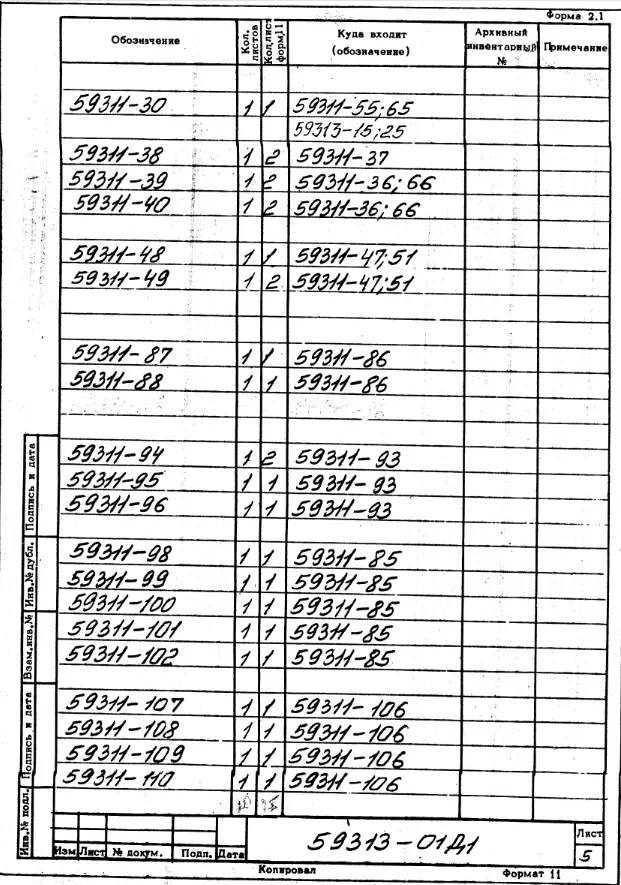 Форма 2.1
Обозначение Кол. листов Кол.лист форм.11 Куда входит (обозначение) Архивный инвентарный № Примечание
59311-30 1 1 59311-55;65
59313-15;25
59311-38 1 2 59311-37
59311-39 1 2 59311-36;66
59311-40 1 2 59311-36;66
59311-48 1 1 59311-47;51
59311-49 1 2 59311-47;51
59311-87 1 1 59311-86
59311-88 1 1 59311-86
59311-94 1 2 59311-93
59311-95 1 1 59311-93
59311-96 1 1 59311-93
59311-98 1 1 59311-85
59311-99 1 1 59311-85
59311-100 1 1 59311-85
59311-101 1 1 59311-85
59311-102 1 1 59311-85
59311-107 1 1 59311-106
59311-108 1 1 59311-106
59311-109 1 1 59311-106
59311-110 1 1 59311-106
Подпись и дата
Инв.№ дубл.
Взам.инв.№
Подпись и дата
Инв.№ подл.
59313-01Д1
Лист
5
Изм Лист № докум. Подп. Дата
Копировал Формат 11